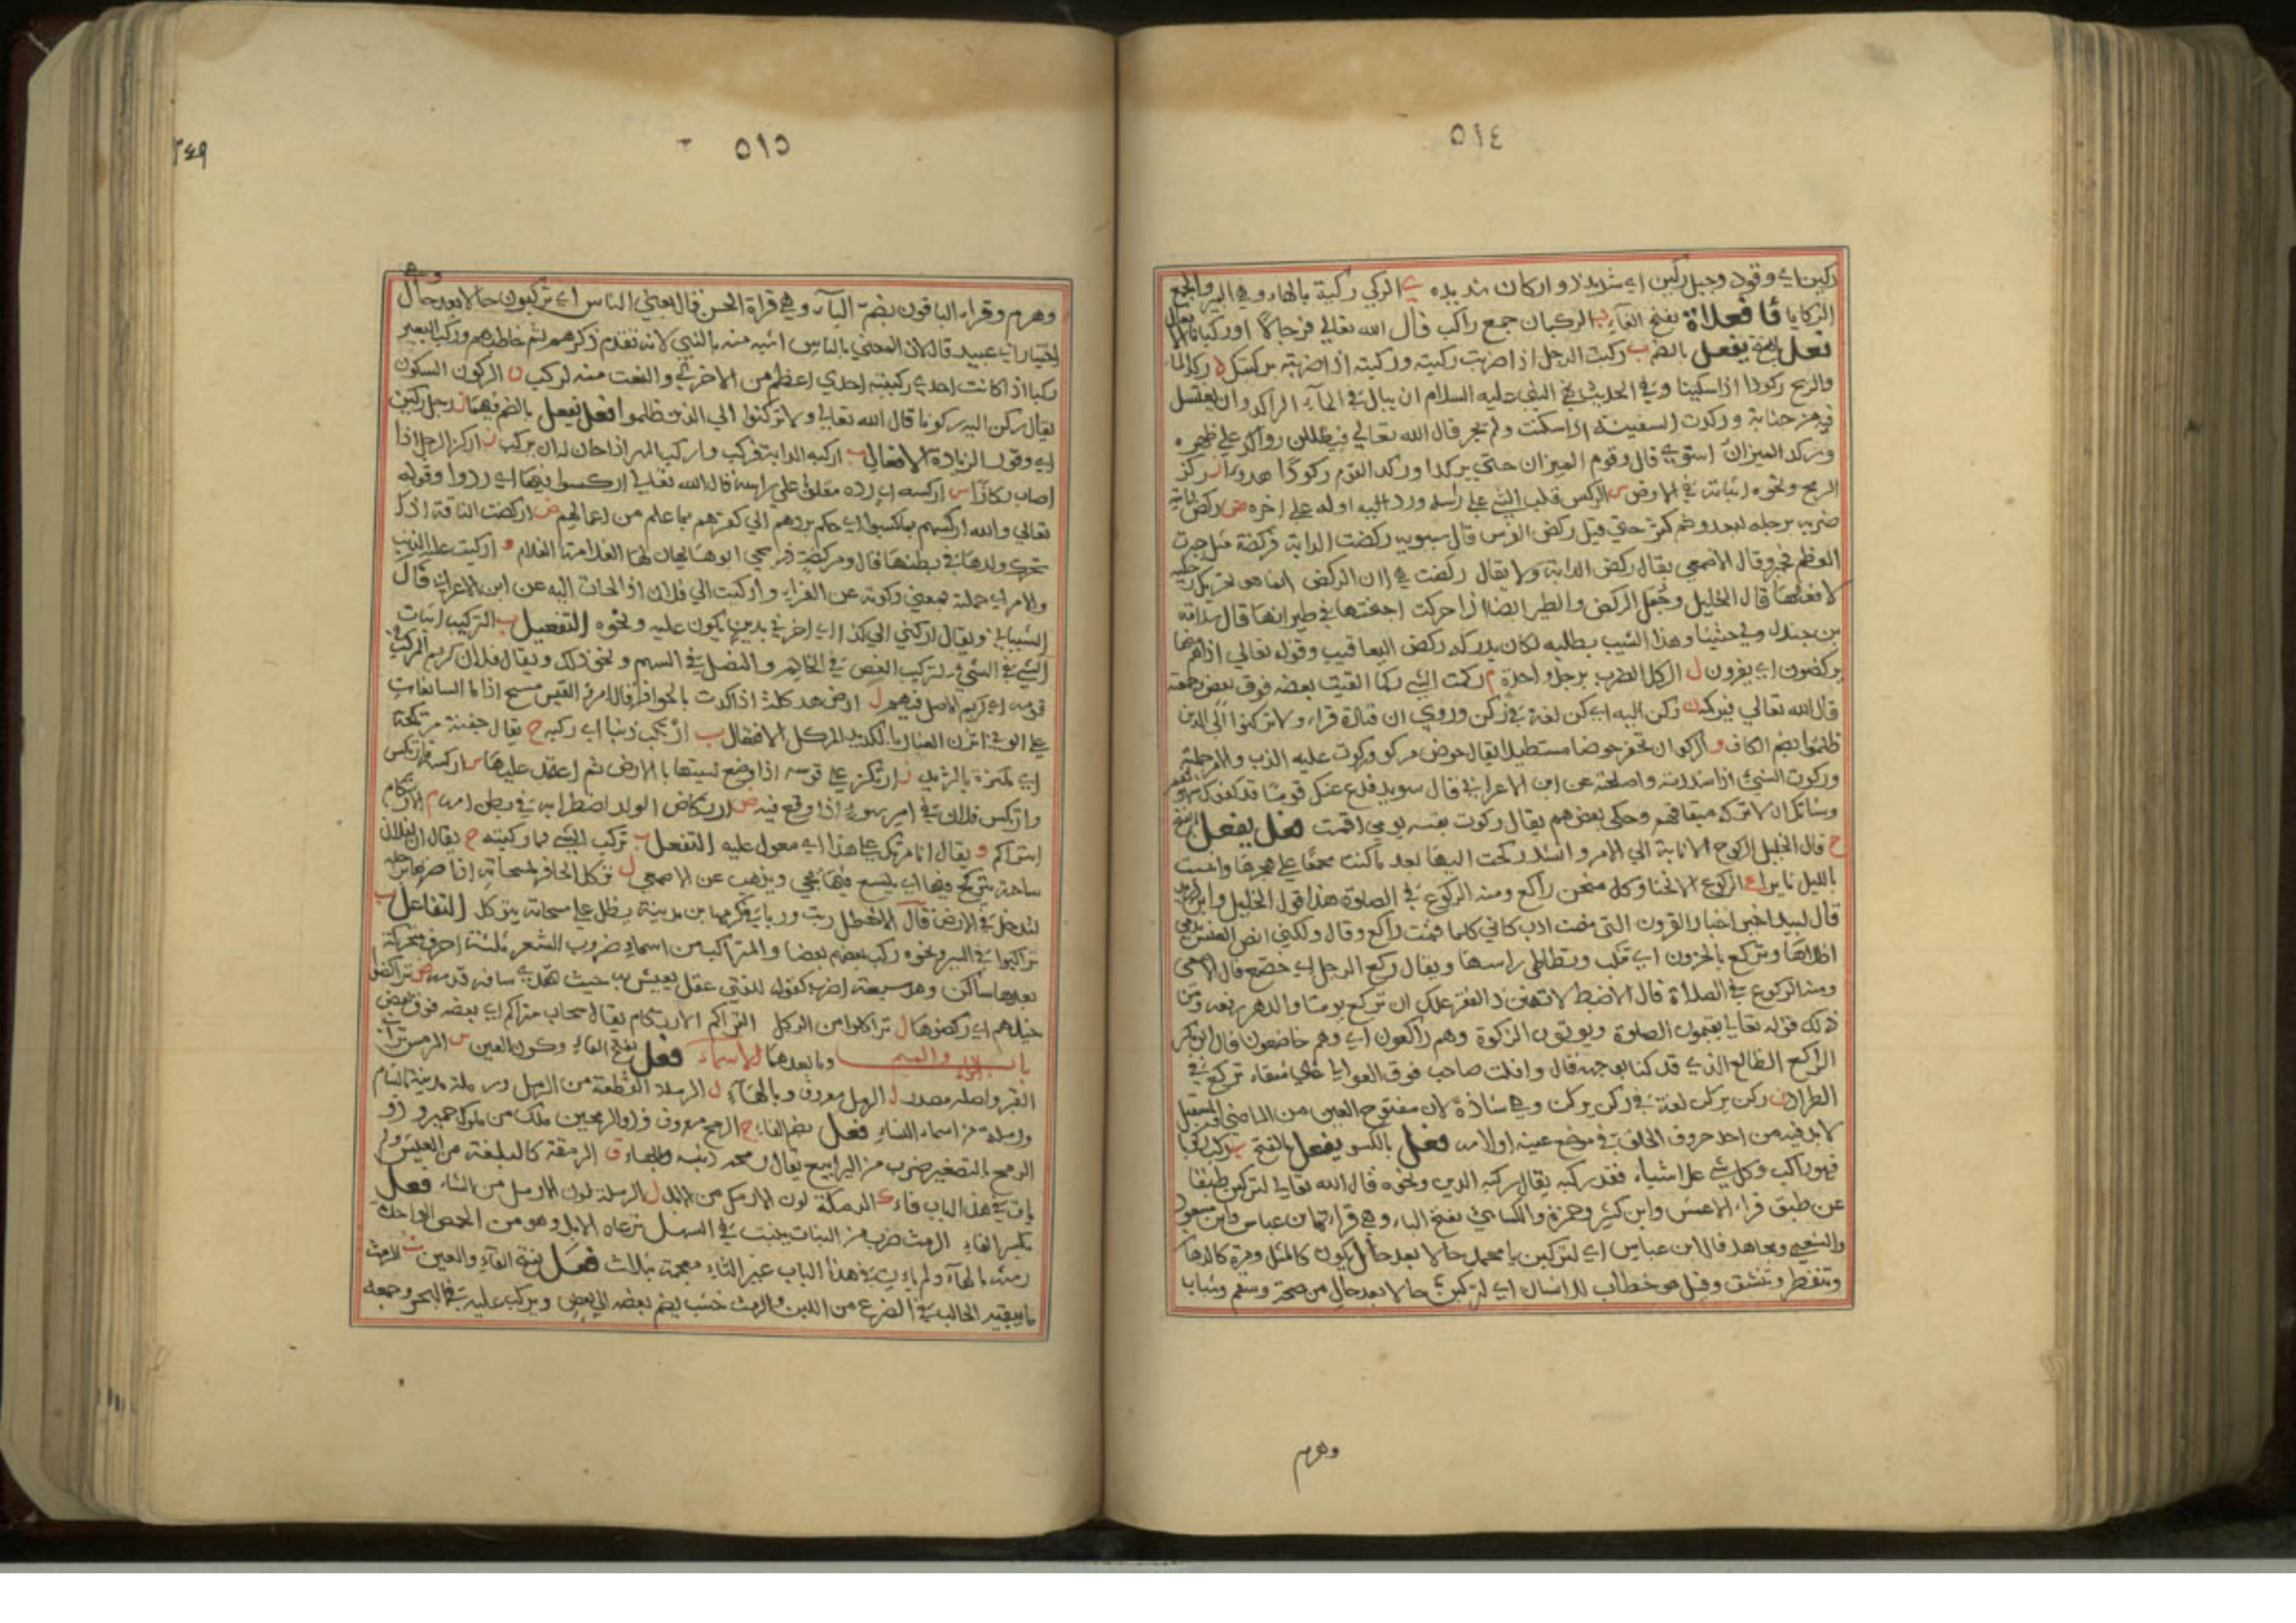 ٥١٤
ركين اي وقور وجبل ركين اي شديد ذو اركان شديده ي الركي ركية بالهاء وهي البير والجمع
الركايا فعلان بفتح الفاء ب الركبان جمع راكب قال الله تعالى فرجالا او ركبانا
فعل يفعل بالضم ب ركبت الرجل اذا ضربت ركبته وركبته اذا ضربته بركبتك د ركد الماء
والريح ركودا اذا سكنا وفي الحديث نهى النبي عليه السلام ان يبال في الماء الراكد وان يغتسل
فيه من جنابة وركدت السفينة اذا سكنت ولم تجر قال الله تعالى فيظللن رواكد على ظهره
وركد الميزان استوى قال وقوم الميزان حتى يركدا وركد القوم ركودا هدوا ز ركز
الرمح ونحوه اثباته في الارض س الركس قلب الشيء على راسه ورد اليه اوله على اخره ض ركض الدابة
ضربه برجله ليعدو ثم كثر حتى قيل ركض الفرس قال سيبويه ركضت الدابة فركضت مثل جبرت
العظم فجبر وقال الاصمعي يقال ركض الدابة ولا يقال ركضت هي لان الركض انما هو تحريك رجليه
لا فعلها قال الخليل وجعل الركض والطير ايضا اذا حركت اجنحتها في طيرانها قال سلامة
بن جندل ولى حثيثا وهذا الشيب يطلبه لو كان يدركه ركض اليعاقيب وقوله تعالى اذا هم منها
يركضون اي يفرون ل الركل الضرب برجل واحدة م ركمت الشيء ركما القيت بعضه فوق بعض وجمعته
قال الله تعالى فيركمه ن ركن اليه اي ركن لغة في ركن وروي ان قتادة قراء ولا تركنوا الى الذين
ظلموا بضم الكاف و الركو ان تحفر حوضا مستطيلا يقال حوض مركو وركوت عليه الذنب والامر حملته
وركوت الشيء اذا سددته واصلحته عن ابن الاعرابي قال سويد فدع عنك قوما قد كفوك شؤونهم
وشانك ان لا تركه متفاقم وحكى بعضهم يقال ركوت بقية يومي اقمت فعل يفعل بالفتح
ح قال الخليل الركوح الانابة الى الامر وانشد ركحت اليها بعد ما كنت مجمعا على هجرها وانسبت
بالليل ثايرا ع الركوع الانحنا وكل منحن راكع ومنه الركوع في الصلوة هذا قول الخليل
قال لبيد اخبر اخبار القرون التي مضت ادب كاني كلما قمت راكع وقال ولكني انص العنس يدمي
اظلاها وتركع بالحزون اي تكب وتطاطي راسها ويقال ركع الرجل اي خضع قال الاصمعي
ومنه الركوع في الصلاة قال الاضبط لا تهين الفقير علك ان تركع يوما والدهر قد رفعه ومن
ذلك قوله تعالى يقيمون الصلوة ويوتون الزكوة وهم راكعون اي وهم خاضعون قال ابو بكر
الراكع الظالع الذي قد كبا لوجهه قال وافلت صاحب فوق العوالي على شقاء تركع في
الظراب ن ركن يركن لغة في ركن يركن وهي شاذة لان مفتوح العين من الماضي والمستقبل
لا بد فيه من احد حروف الحلق في موضع عينه او لامه فعل بالكسر يفعل بالفتح ب ركب ركوبا
فهو راكب وكل شيء علا شياء فقد ركبه يقال ركبه الدين ونحوه قال الله تعالى لتركبن طبقا
عن طبق قراء الاعمش وابن كثير وحمزة والكسائي بفتح الباء وهي قراءة ابن عباس وابن مسعود
والشعبي ومجاهد قال ابن عباس اي لتركبن يا محمد حالا بعد حال يكون كالمهل ومرة كالدهان
وتنفطر وتنشق وقيل هو خطاب للانسان اي لتركبن حالا بعد حال من صحة وسقم وشباب
وهرم
٥١٥
٢٤٩
وهرم وقراء الباقون بضم الباء وهي قراة الحسن قال يعني الناس اي تركبون حالا بعد حال وهي
اختيار ابي عبيد قال لان المعني بالناس اشبه منه بالنبي لانه تقدم ذكرهم ثم خاطبهم وركب البعير
ركبا اذا كانت احدى ركبتيه احدى اعظم من الاخرى والنعت منه اركب ن الركون السكون
يقال ركن اليه ركونا قال الله تعالى ولا تركنوا الى الذين ظلموا فعل يفعل بالضم فيهما ن رجل ركين
اي وقور الزيادة الافعال ب اركبه الدابة فركب واركب المهر اذا حان له ان يركب ز اركز الرجل اذا
اصاب ركازا س اركسه اي رده مقلوبا على راسه قال الله تعالى اركسوا فيها اي ردوا وقوله
تعالى والله اركسهم بما كسبوا اي حكم بردهم الى كفرهم بما علم من اعمالهم ض اركضت الناقة اذا
تحرك ولدها في بطنها قال ومركضة صريحي ابوها يهان لها الغلامة والغلام و اركيت عليه الذنب
والامر اي حملته بمعنى ركوته عن الفراء واركيت الى فلان اذا لجأت اليه عن ابن الاعرابي قال
الشيباني ويقال اركني الى كذا اي اخرني بدين يكون عليه ونحوه التفعيل ب التركيب اثبات
الشيء في الشيء وتركيب الفص في الخاتم والنصل في السهم ونحو ذلك ويقال فلان كريم المركب
قومه اي كريم الاصل فيهم ل ارض مركلة اذا كدت بالحوافر قال امرؤ القيس مسح اذا ما السابحات
على الونى اثرن الغبار بالكديد المركل الافتعال ب ارتكب ذنبا اي ركبه ح يقال جفنة مرتكحة
اي مكتنزة بالثريد ز ارتكز على قوسه اذا وضع سيتها بالارض ثم اعتمد عليها س اركسه فارتكس
وارتكس فلان في امر سوء اذا وقع فيه ض ارتكاض الولد اضطرابه في بطن امه م الارتكام
التراكم و يقال انا مرتك على هذا اي معول عليه التفعل ب تركب الشيء مما ركبته ح يقال ان لفلان
ساحة يتركح فيها اي يتسع فيها عن الاصمعي ل تركل الحافر بمسحاته اذا ضربها برجله
لتدخل في الارض قال الاخطل ربت وربا في كرمها ابن مدينة يظل على مسحاته يتركل التفاعل ب
تراكبوا في السير ونحوه ركب بعضهم بعضا والمتراكب من اسماء ضروب الشعر ثلثة احرف متحركة
بعدها ساكن وهو سبعة اضرب كقوله للفتى عقل يعيش به حيث تهدي ساقه قدمه ض تراكضوا
خيلهم اي ركضوها ل تراكلوا من الركل التراكم الارتكام يقال سحاب متراكم اي بعضه فوق بعض
باب الراء والميم وما بعدهما الاسماء فعل بفتح الفاء وسكون العين س الرمس تراب
القبر واصله مصدر ل الرمل معروف وبالهاء ل الرملة القطعة من الرمل ورملة مدينة بالشام
ورملة من اسماء النساء فعل بضم الفاء ح الرمح معروف وذو الرمحين ملك من ملوك حمير وذو
الرميح بالتصغير ضرب من اليرابيع يقال رمحه ذنبه وبالهاء ق الرمقة كالبلغة من العيش ولم
يات في هذا الباب فاء ك الرمكة لون الارمك من الابل ل الرملة لون الارمل من الشاء فعل
بكسر الفاء الرمث ضرب من النبات ينبت في السهل ترعاه الابل وهو من الحمض الواحدة
رمثة بالهاء ولم يات في هذا الباب غير الثاء معجمة بثلاث فعل بفتح الفاء والعين ث الرمث
ما يبقيه الحالب في الضرع من اللبن والرمث خشب يضم بعضه الى بعض ويركب عليه في البحر وجمعه